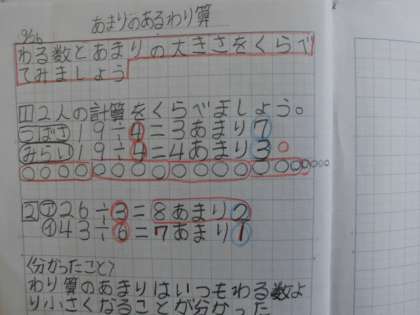 9/26
あまりのあるわり算
わる数とあまりの大きさをくらべ
てみましょう
1 2人の計算をくらべましょう。
つばさ 19÷4=3あまり7
みらい 19÷4=4あまり3
2 ㋐26÷3=8あまり2
㋑43÷6=7あまり1
〈分かったこと〉
わり算のあまりはいつもわる数よ
り小さくなることが分かった